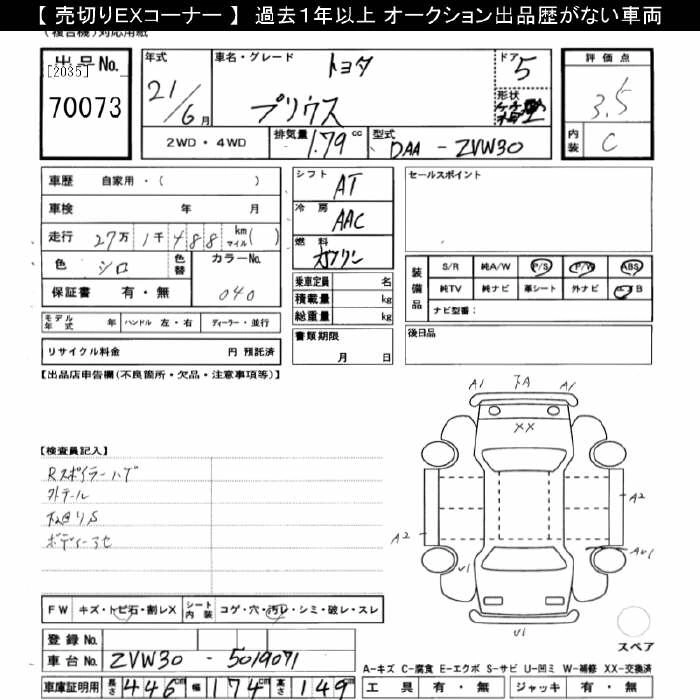 【 売切りEXコーナー 】 過去1年以上 オークション出品歴がない車両
(複合機)対応用紙
出品No.
[2035]
70073
年式
21/6月
車名・グレード
トヨタ
プリウス
ドア
5
形状
評価点
3.5
内装
C
2WD・4WD
排気量
1.79cc
型式
DAA - ZVW30
車歴 自家用・( )
車検 年 月
走行 27万1千488 km マイル( )
色 シロ 色替 カラーNo.
040
保証書 有・無
シフト
AT
冷房
AAC
燃料
ガソリン
乗車定員 名
積載量 kg
総重量 kg
セールスポイント
装備品
S/R 純A/W P/S P/W ABS
純TV 純ナビ 革シート 外ナビ エアB
ナビ型番:
モデル年式 年 ハンドル 左・右 ディーラー・並行
リサイクル料金 円 預託済
書類期限
月 日
後日品
【出品店申告欄(不良箇所・欠品・注意事項等)】
A1 FA A1
XX
【検査員記入】
Rスポイラーハゲ
外テール
ボディーヨゴ
A2
A2
U1
AU1
U1
FW キズ・トビ石・割レX シート内装 コゲ・穴・汚レ・シミ・破レ・スレ
登録No.
車台No. ZVW30 - 5019071
スペア
A-キズ C-腐食 E-エクボ S-サビ U-凹ミ W-補修 XX-交換済
車庫証明用 長さ 446cm 幅 174cm 高さ 149cm
工具 有・無 ジャッキ 有・無